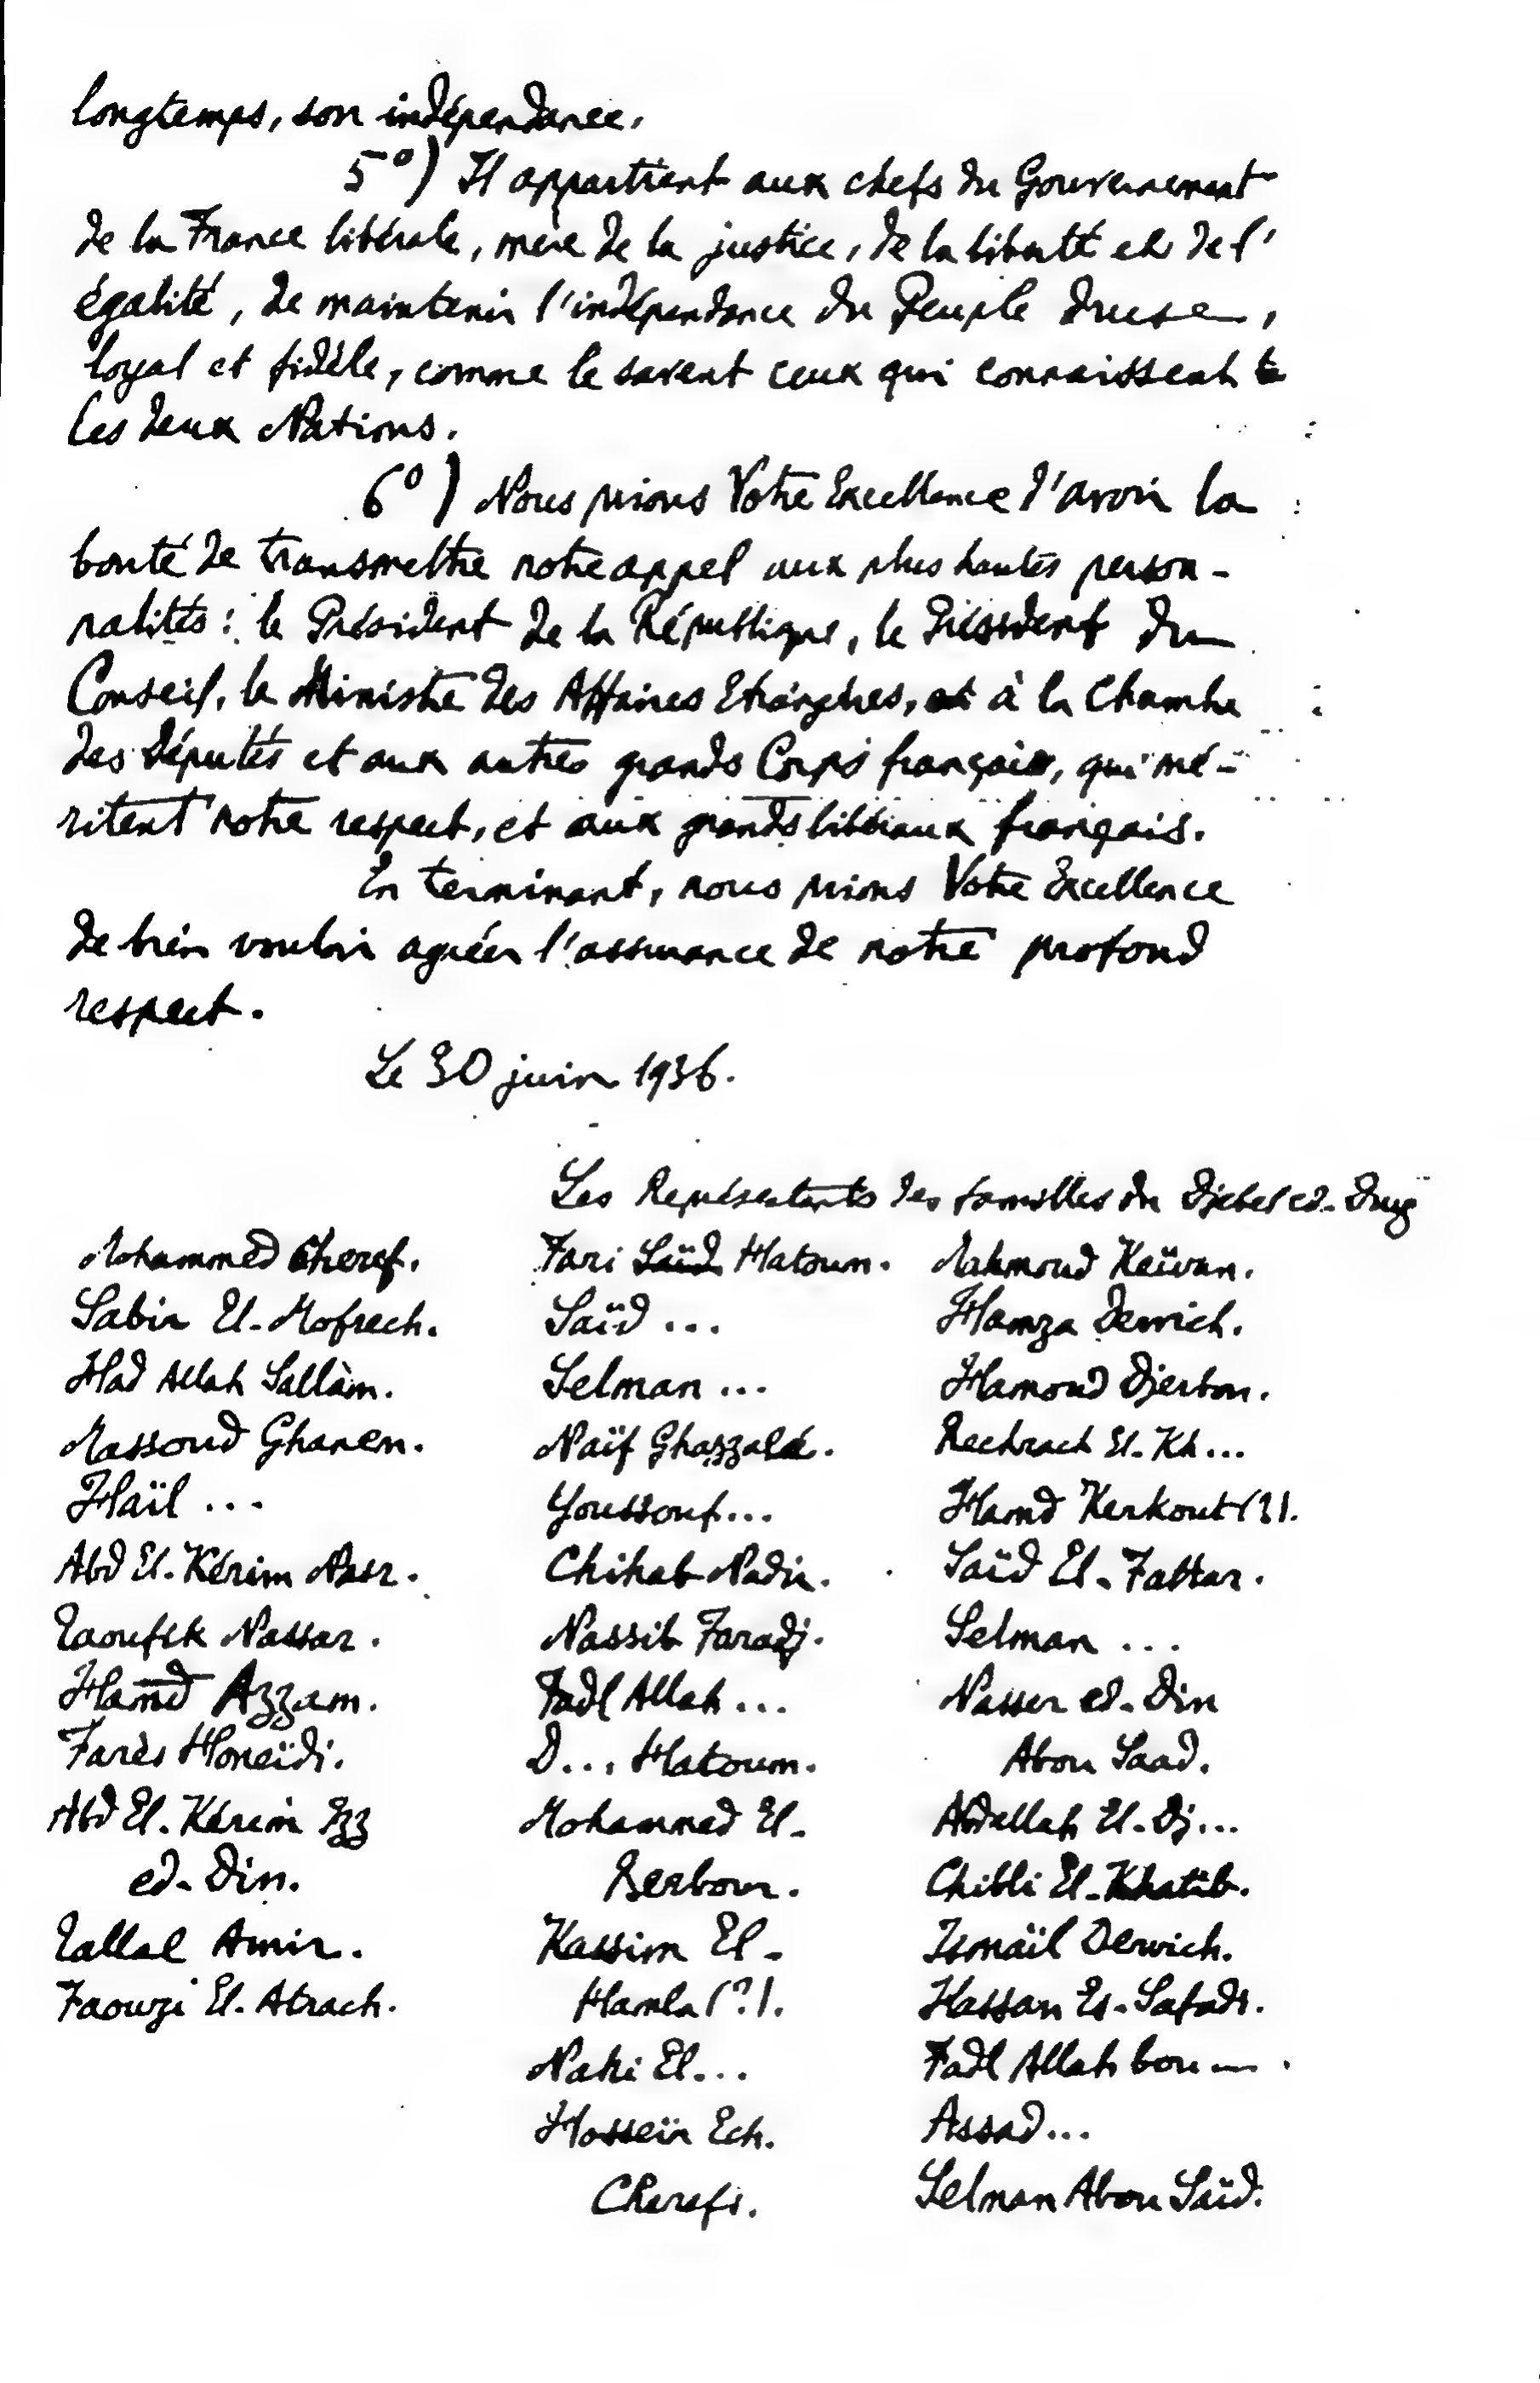 longtemps, son indépendance.
5°) Il appartient aux chefs du Gouvernement
de la France libérale, mère de la justice, de la liberté et de l'
égalité, de maintenir l'indépendance du Peuple druse,
loyal et fidèle, comme le savent ceux qui connaissent
les deux Nations.
6°) Nous prions Votre Excellence d'avoir la
bonté de transmettre notre appel aux plus hautes person-
nalités : le Président de la République, le Président du
Conseil, le Ministre des Affaires Etrangères, et à la Chambre
des Députés et aux autres grands Corps français, qui mé-
ritent notre respect, et aux grands libéraux français.
En terminant, nous prions Votre Excellence
de bien vouloir agréer l'assurance de notre profond
respect.
Le 30 juin 1936.
Les Représentants des familles du Djebel ed-Druz
Mohammed Cheref.
Sabir El-Mofrech.
Had Allah Sallàm.
Massoud Ghanen.
Haïl ...
Abd El-Kérim Nasr.
Taoufik Nassar.
Hamd Azzam.
Farès Honeïdi.
Abd El-Kérim Izz
ed-Din.
Tallal Amir.
Faouzi El-Atrach.
Fari Saïd Hatoum.
Saïd ...
Selman ...
Naïf Ghazzalé.
Youssouf...
Chihab Nadir.
Nassib Faradj.
Fadl Allah ...
D... Hatoum.
Mohammed El-
Berbour.
Kassim El-
Hamla (?).
Nahi El...
Hosseïn Ech.
Cherefi.
Mahmoud Keïwan.
Hamza Derwich.
Hamoud Djerbou.
Rechrach El-Kh...
Hamd Kerkout (?).
Saïd El-Fattar.
Selman ...
Nasser ed-Din
Abou Saad.
Abdallah El-Dj...
Chibli El-Khatib.
Ismaïl Derwich.
Hassan Es-Safadi.
Fadl Allah bou ...
Assad...
Selman Abou Saïd.